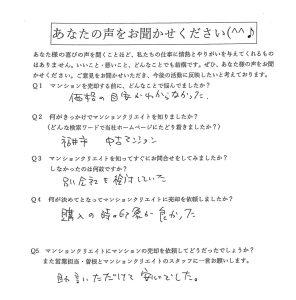 あなたの声をお聞かせください(^^♪
あなた様の喜びの声を聞くことほど、私たちの仕事に情熱とやりがいを与えてくれるものは
ありません。いいこと・悪いこと、どんなことでも結構です。ぜひ、あなた様の声をお聞
かせください。ご意見をお聞かせいただき、今後の活動に反映したいと考えております。
Q1 マンションを売却する前に、どんなことで悩んでましたか?
価格の目安がわからなかった
Q2 何がきっかけでマンションクリエイトを知りましたか?
(どんな検索ワードで当社ホームページにたどり着きましたか?)
福井市 中古マンション
Q3 マンションクリエイトを知ってすぐにお問合せをしてみましたか?
しなかったのは何故ですか?
別会社を検討していた
Q4 何が決めてとなってマンションクリエイトに売却を依頼しましたか?
購入の時の印象が良かった
Q5 マンションクリエイトにマンションの売却を依頼してどうだったでしょうか?
また営業担当・曽根とマンションクリエイトのスタッフに一言お願いします。
助言いただけて 安心でした。